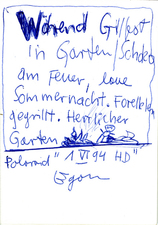 Während Grillfest
in Garten/Schdeg
am Feuer, laue
Sommernacht. Forellen
gegrillt. Herrlicher
Garten
Polaroid "1 VI 94 HD"
Egon